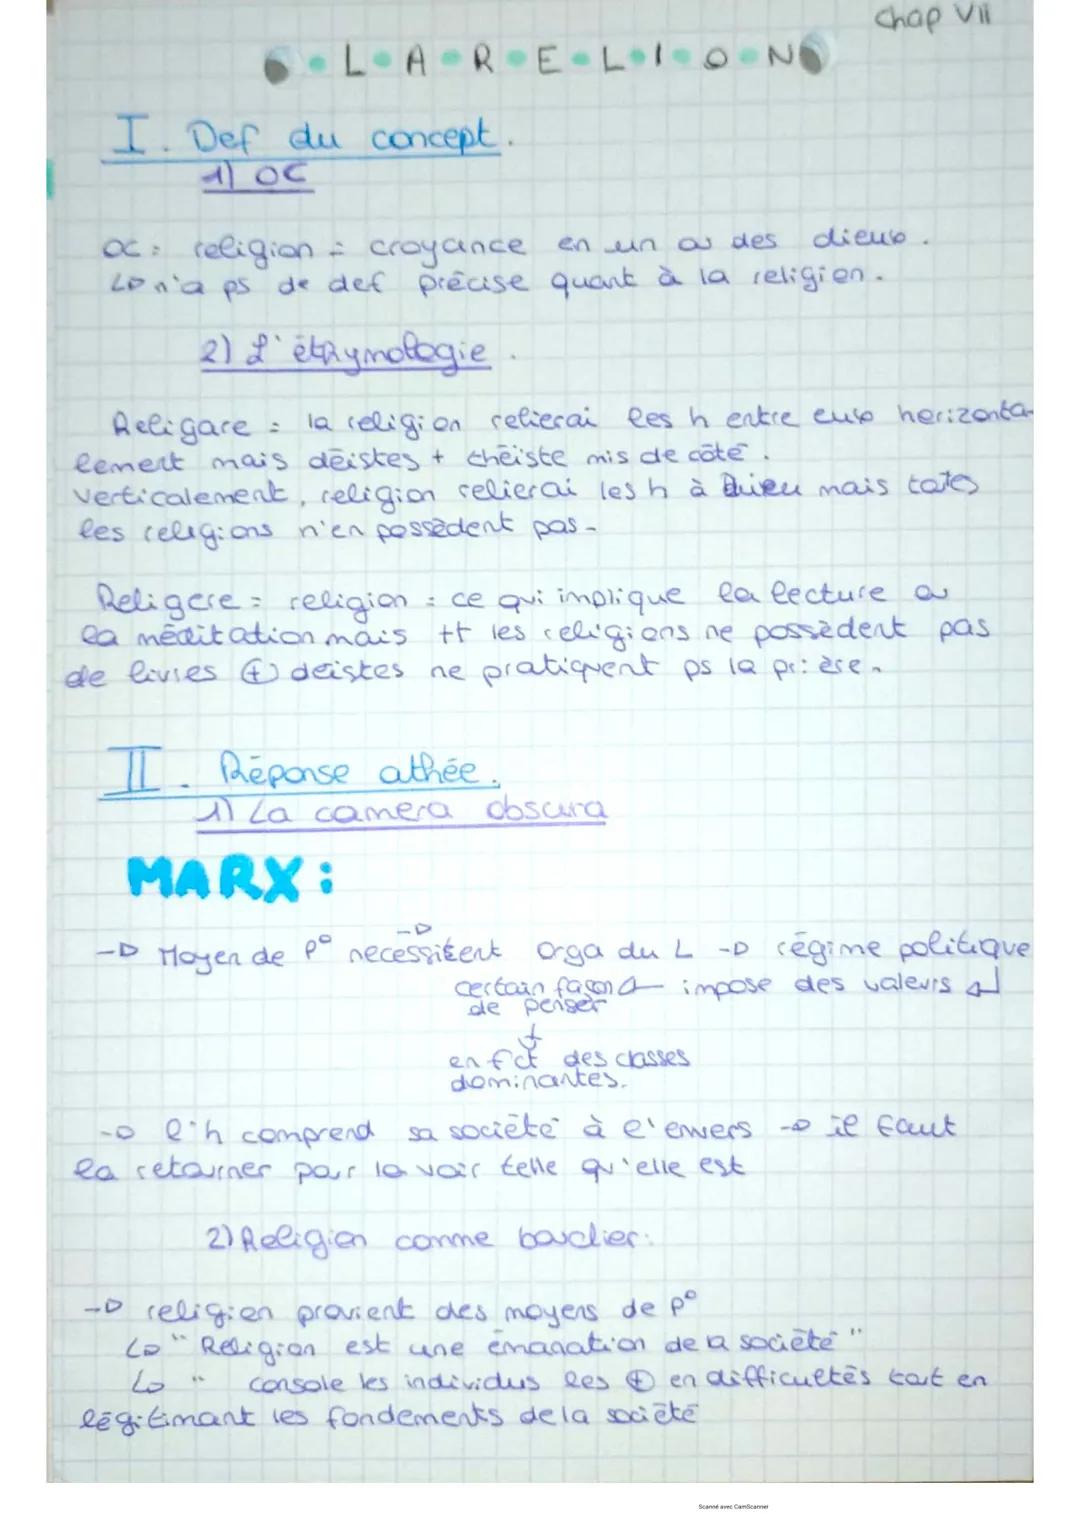 Chap VII
L•A•R•E•L•I•O•N
I. Def du concept.
1) OC
OC : religion = croyance en un ou des dieux.
↳ n'a ps de def précise quant à la religion.
2) L'éthymologie.
Religare = la religion relierai les h entre eux horizonta-
lement mais déistes + théiste mis de côté.
Verticalement, religion relierai les h à Dieu mais toutes
les religions n'en possèdent pas.
Religere = religion = ce qui implique la lecture ou
la méditation mais tt les religions ne possèdent pas
de livres ⊕ déistes ne pratiquent ps la prière.
II. Réponse athée.
1) La camera obscura
MARX :
→ Moyen de p° necessitent → orga du L → régime politique
certain façon ← impose des valeurs ↲
de penser
↓
en fct des classes
dominantes.
→ l'h comprend sa société à l'envers → il faut
la retourner pour la voir telle qu'elle est
2) Religion comme bouclier.
→ religion provient des moyens de p°
↳ " Religion est une émanation de la société "
↳ " console les individus les ⊕ en difficultés tout en
légitimant les fondements de la société
Scanné avec CamScanner